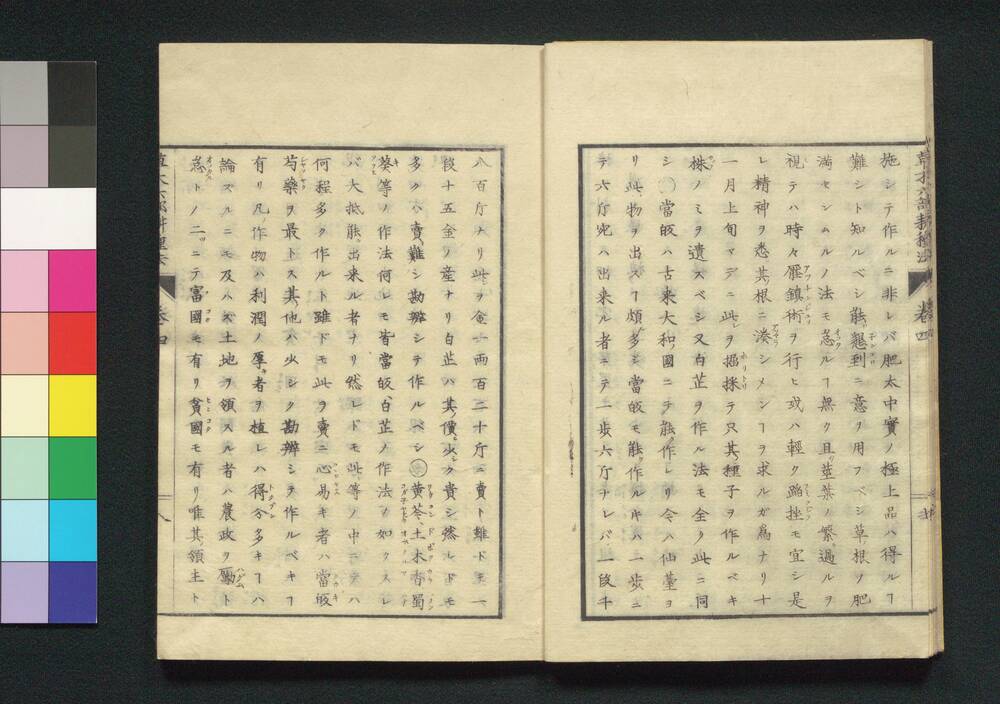 施シテ作ルニ非レバ肥太中實ノ極上品ハ得ルヿ
難シト知ルベシ能懇到ニ意ヲ用フベシ草根ノ肥
満セシムルノ法モ怠ルヿ無ク且莖葉ノ繁過ルヲ
視テハ時々壓鎮術ヲ行ヒ或ハ輕ク蹈挫モ宜シ是
レ精神ヲ悉其根ニ湊シメンヿヲ求ルガ為ナリ十
一月上旬マデニ此ヲ掘採ラ只其種子ヲ作ルベキ
株ノミヲ遺スベシ又白芷ヲ作ル法モ全ク此ニ同
シ〇當皈ハ古来大和國ニテ能作レリ今ハ仙臺ヨ
リ此物ヲ出スヿ頗多シ當皈モ能作ルキハ一歩ニ
テ六斤宛ハ出来ル者ニテ一歩六斤ナレバ一段千
八百斤ナリ此ヲ金一両百二十斤ニ賣ト雖ドモ一
段十五金ノ産ナリ白芷ハ其價少ク貴シ然レドモ
多クハ賣難シ勘辨シテ作ルベシ〇黄芩土木香蜀
葵等ノ作法何レモ皆當皈白芷ノ作法ノ如クスレ
バ大抵能出来ル者ナリ然レドモ此等ノ中ニテハ
何程多ク作ルト雖ドモ此ヲ賣ニ心易キ者ハ當皈
芍藥ヲ最トス其他ハ少シク勘辨シテ作ルベキヿ
有リ凡作物ハ利潤ノ厚者ヲ植レハ得分多キヿハ
論スルニモ及ハズ土地ヲ領スル者ハ農政ヲ勵ト
怠トノ二ニテ富國モ有リ貧國モ有リ唯其領主ト